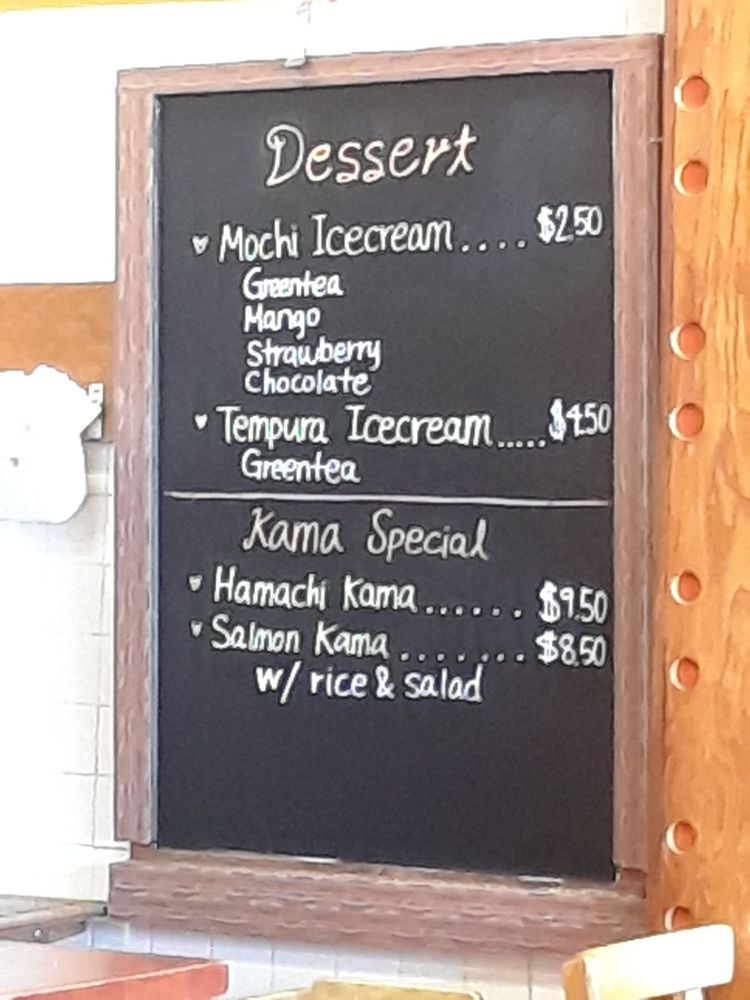 Dessert
Mochi Icecream.... $2.50
Greentea
Mango
Strawberry
Chocolate
Tempura Icecream..... $4.50
Greentea
Kama Special
Hamachi Kama...... $9.50
Salmon Kama....... $8.50
w/ rice & salad